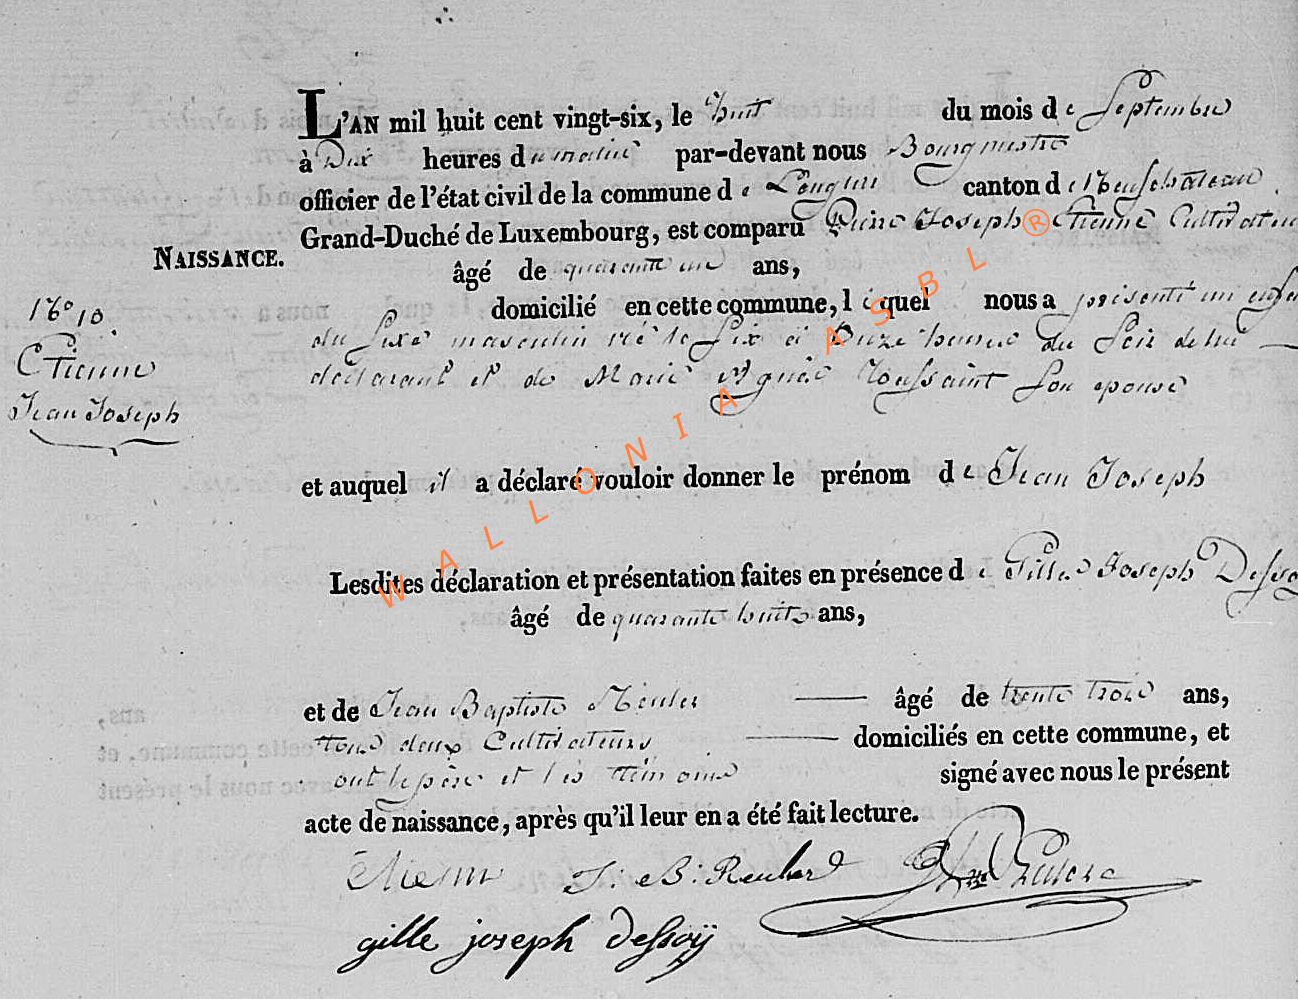 L'AN mil huit cent vingt-six, le huit du mois de Septembre
à Dix heures du matin par-devant nous Bourgmestre
officier de l'état civil de la commune de Longlier canton de Neufchateau
Grand-Duché de Luxembourg, est comparu Pierre Joseph Etienne Cultivateur
NAISSANCE.
âgé de quarante un ans,
domicilié en cette commune, lequel nous a présenté un enfan
N° 10.
Etienne
Jean Joseph
du Sexe masculin né le Six à Onze heures du Soir de lui
déclarant et de Marie Agnès Toussaint Son epouse
et auquel il a déclaré vouloir donner le prénom de Jean Joseph
Lesdites déclaration et présentation faites en présence d Gille Joseph Dessoy
âgé de quarante huit ans,
et de Jean Baptiste âgé de trente trois ans,
tous deux Cultivateurs domiciliés en cette commune, et
ont le père et les témoins signé avec nous le présent
acte de naissance, après qu'il leur en a été fait lecture.
Etienne J: B: Reuler
gille joseph Dessoÿ
WALLONIA ASBL ®